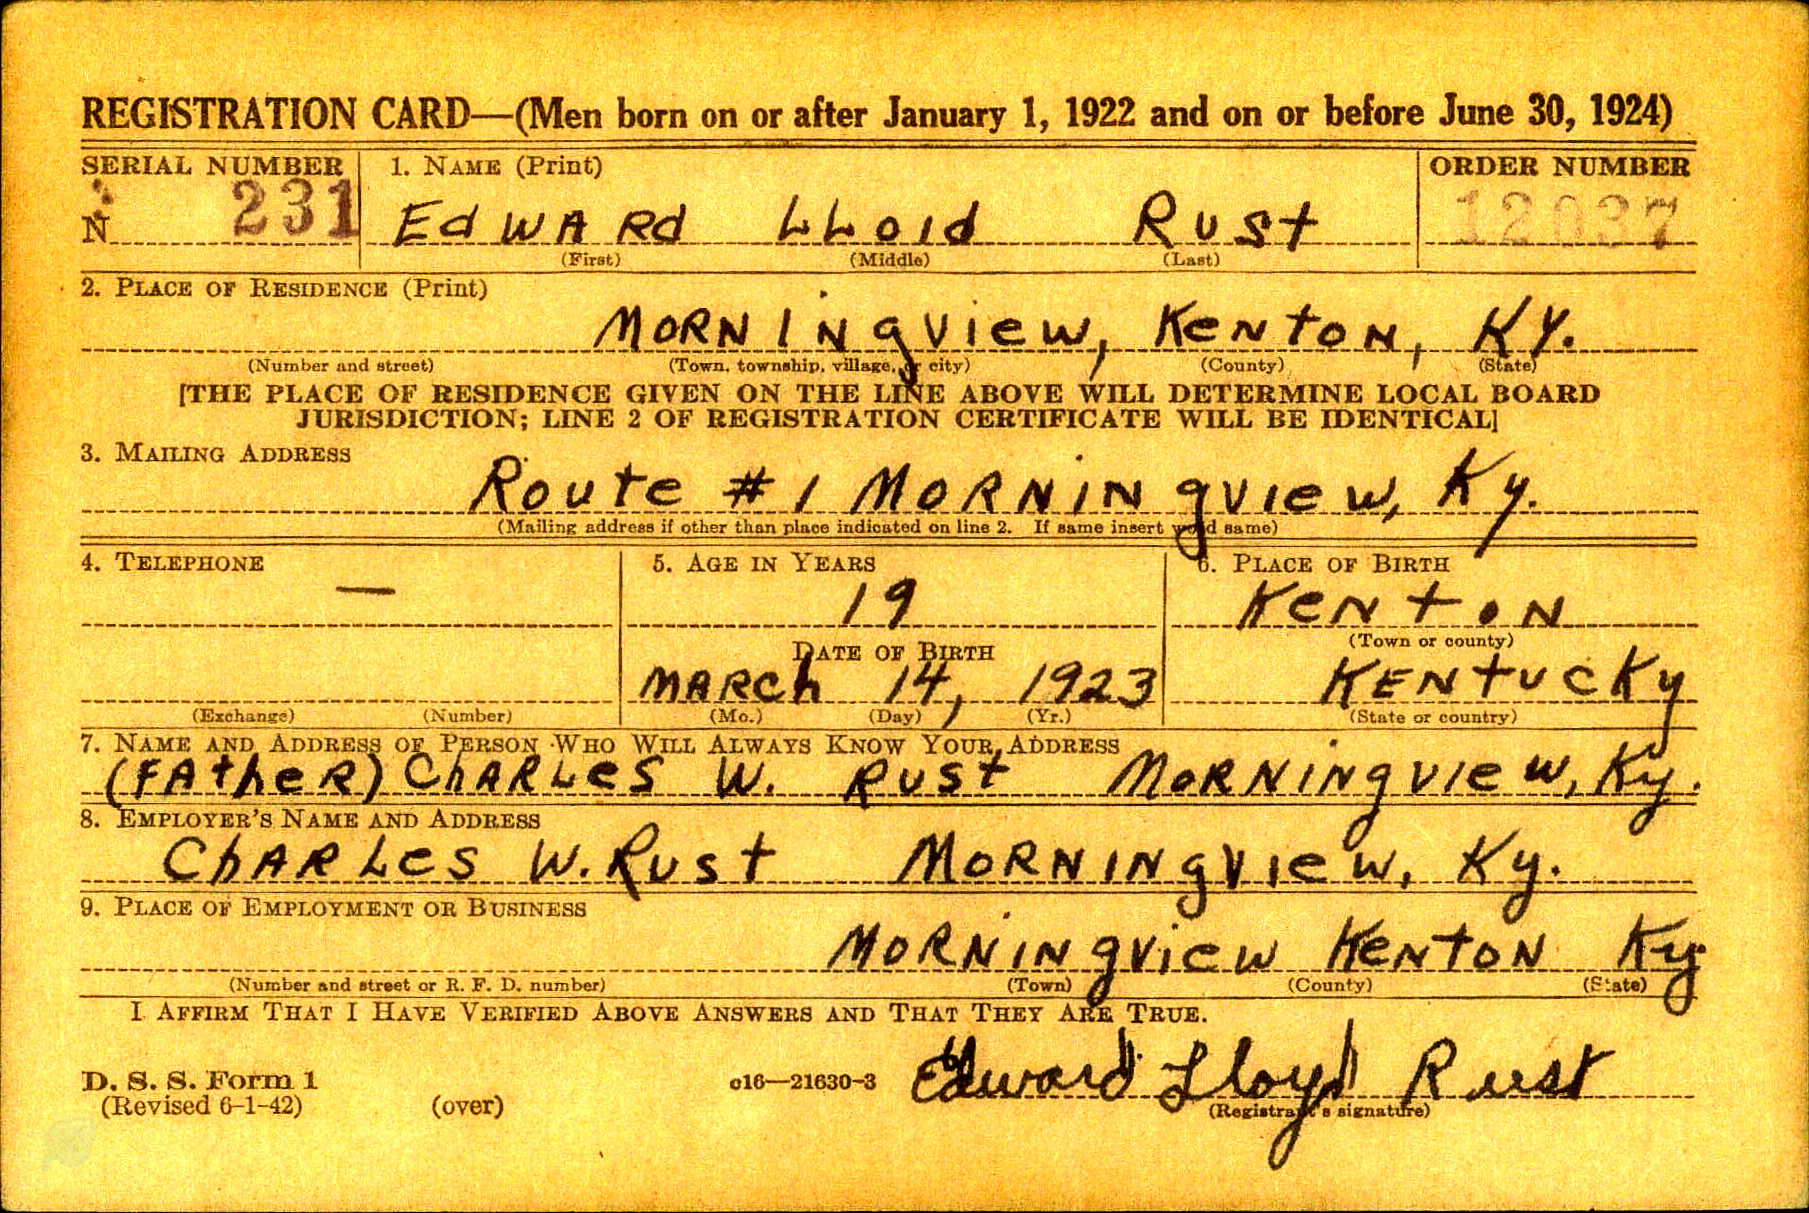 REGISTRATION CARD—(Men born on or after January 1, 1922 and on or before June 30, 1924)
SERIAL NUMBER 1. NAME (Print) ORDER NUMBER
N 231 EdWARd LLOId RUSt 12037
(First) (Middle) (Last)
2. PLACE OF RESIDENCE (Print)
MORNINgVIew, KeNtON, KY.
(Number and street) (Town, township, village, or city) (County) (State)
[THE PLACE OF RESIDENCE GIVEN ON THE LINE ABOVE WILL DETERMINE LOCAL BOARD
JURISDICTION; LINE 2 OF REGISTRATION CERTIFICATE WILL BE IDENTICAL]
3. MAILING ADDRESS
Route # 1 MORNINgVIew, Ky.
(Mailing address if other than place indicated on line 2. If same insert word same)
4. TELEPHONE 5. AGE IN YEARS 6. PLACE OF BIRTH
— 19 KeNtON
DATE OF BIRTH (Town or county)
MARCh 14, 1923 KENtUCKy
(Exchange) (Number) (Mo.) (Day) (Yr.) (State or country)
7. NAME AND ADDRESS OF PERSON WHO WILL ALWAYS KNOW YOUR ADDRESS
(FAtheR) ChARLeS W. RUSt MORNINgVIew, Ky.
8. EMPLOYER'S NAME AND ADDRESS
ChARLeS W. RUSt MORNINgVIew, Ky.
9. PLACE OF EMPLOYMENT OR BUSINESS
MORNINgVIew KeNtON Ky
(Number and street or R. F. D. number) (Town) (County) (State)
I AFFIRM THAT I HAVE VERIFIED ABOVE ANSWERS AND THAT THEY ARE TRUE.
D. S. S. Form 1 c16—21630-3 Edward Lloyd Rust
(Revised 6-1-42) (over) (Registrant's signature)